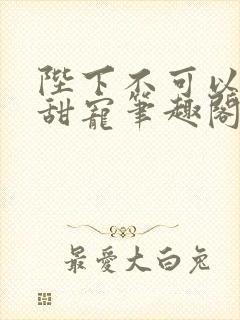 陛下不可以
甜寵筆趣閣
最愛大白兔